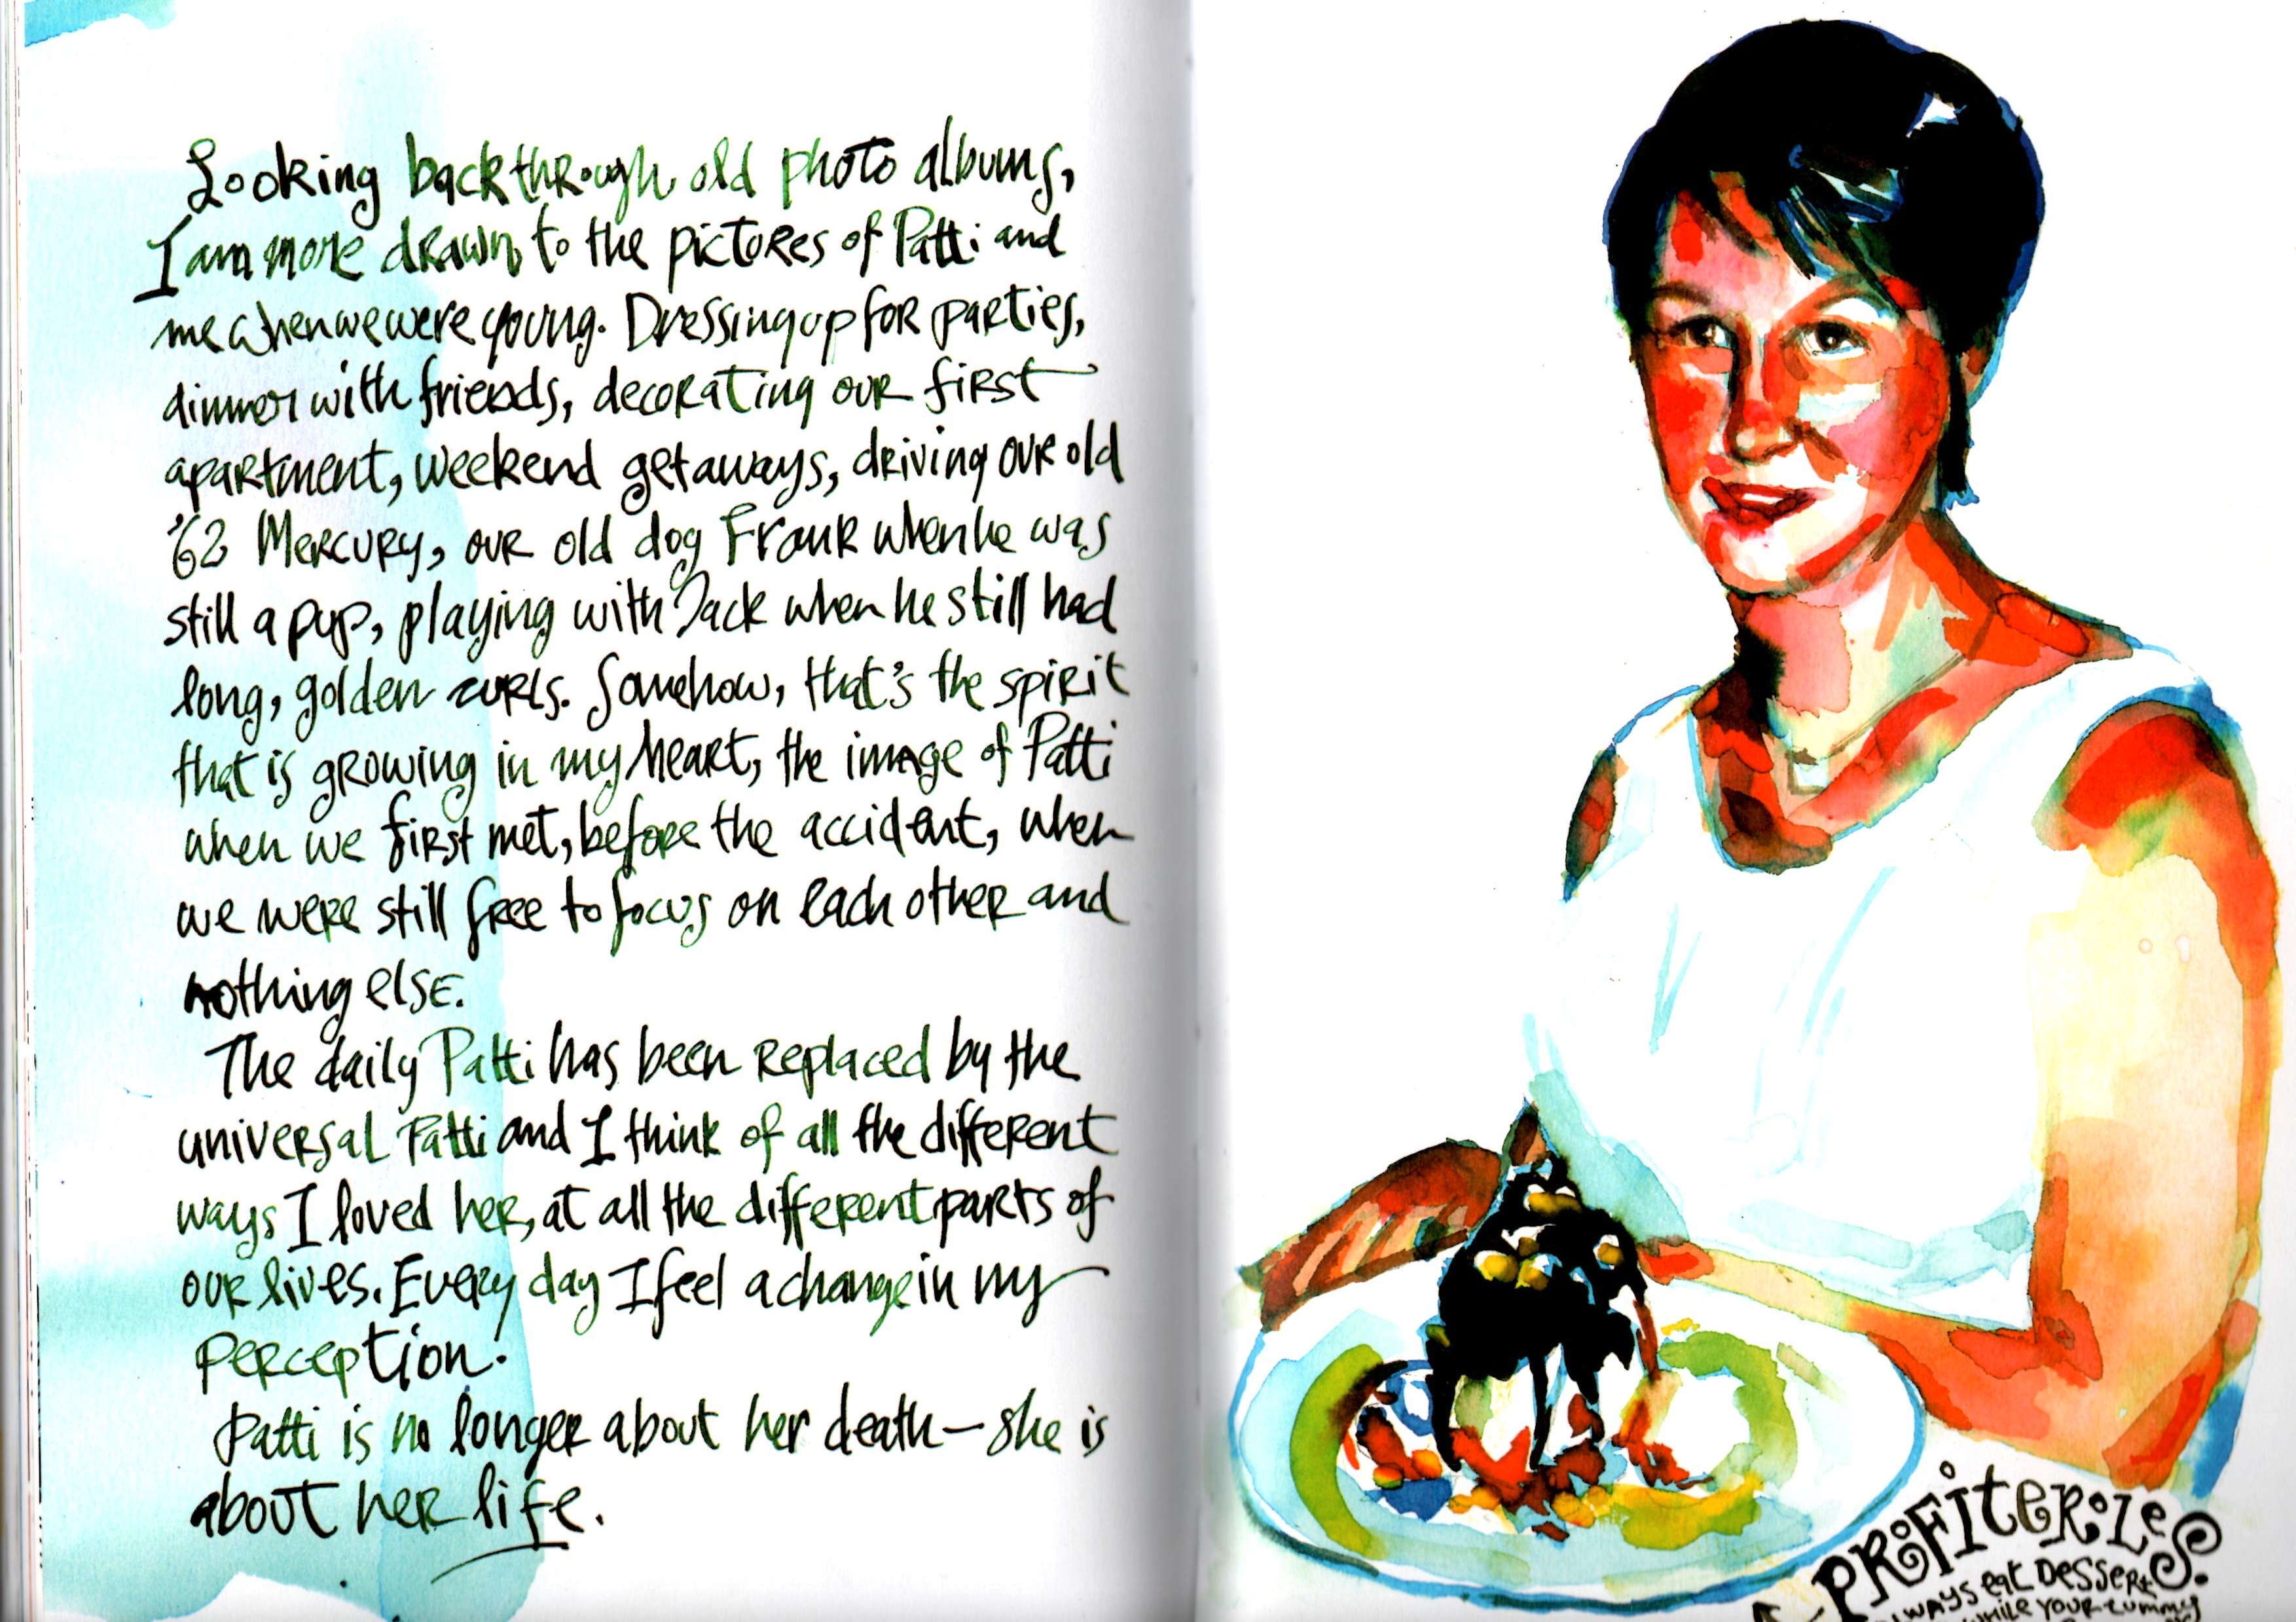 Looking back through old photo albums,
I am more drawn to the pictures of Patti and
me when we were young. Dressing up for parties,
dinner with friends, decorating our first
apartment, weekend getaways, driving our old
'62 Mercury, our old dog Frank when he was
still a pup, playing with Jack when he still had
long, golden curls. Somehow, that's the spirit
that is growing in my heart, the image of Patti
when we first met, before the accident, when
we were still free to focus on each other and
nothing else.
The daily Patti has been replaced by the
universal Patti and I think of all the different
ways I loved her, at all the different parts of
our lives. Every day I feel a change in my
perception.
Patti is no longer about her death – she is
about her life.
PROFITEROLES.
ALWAYS eat DESSERT
WHILE YOUR tummy